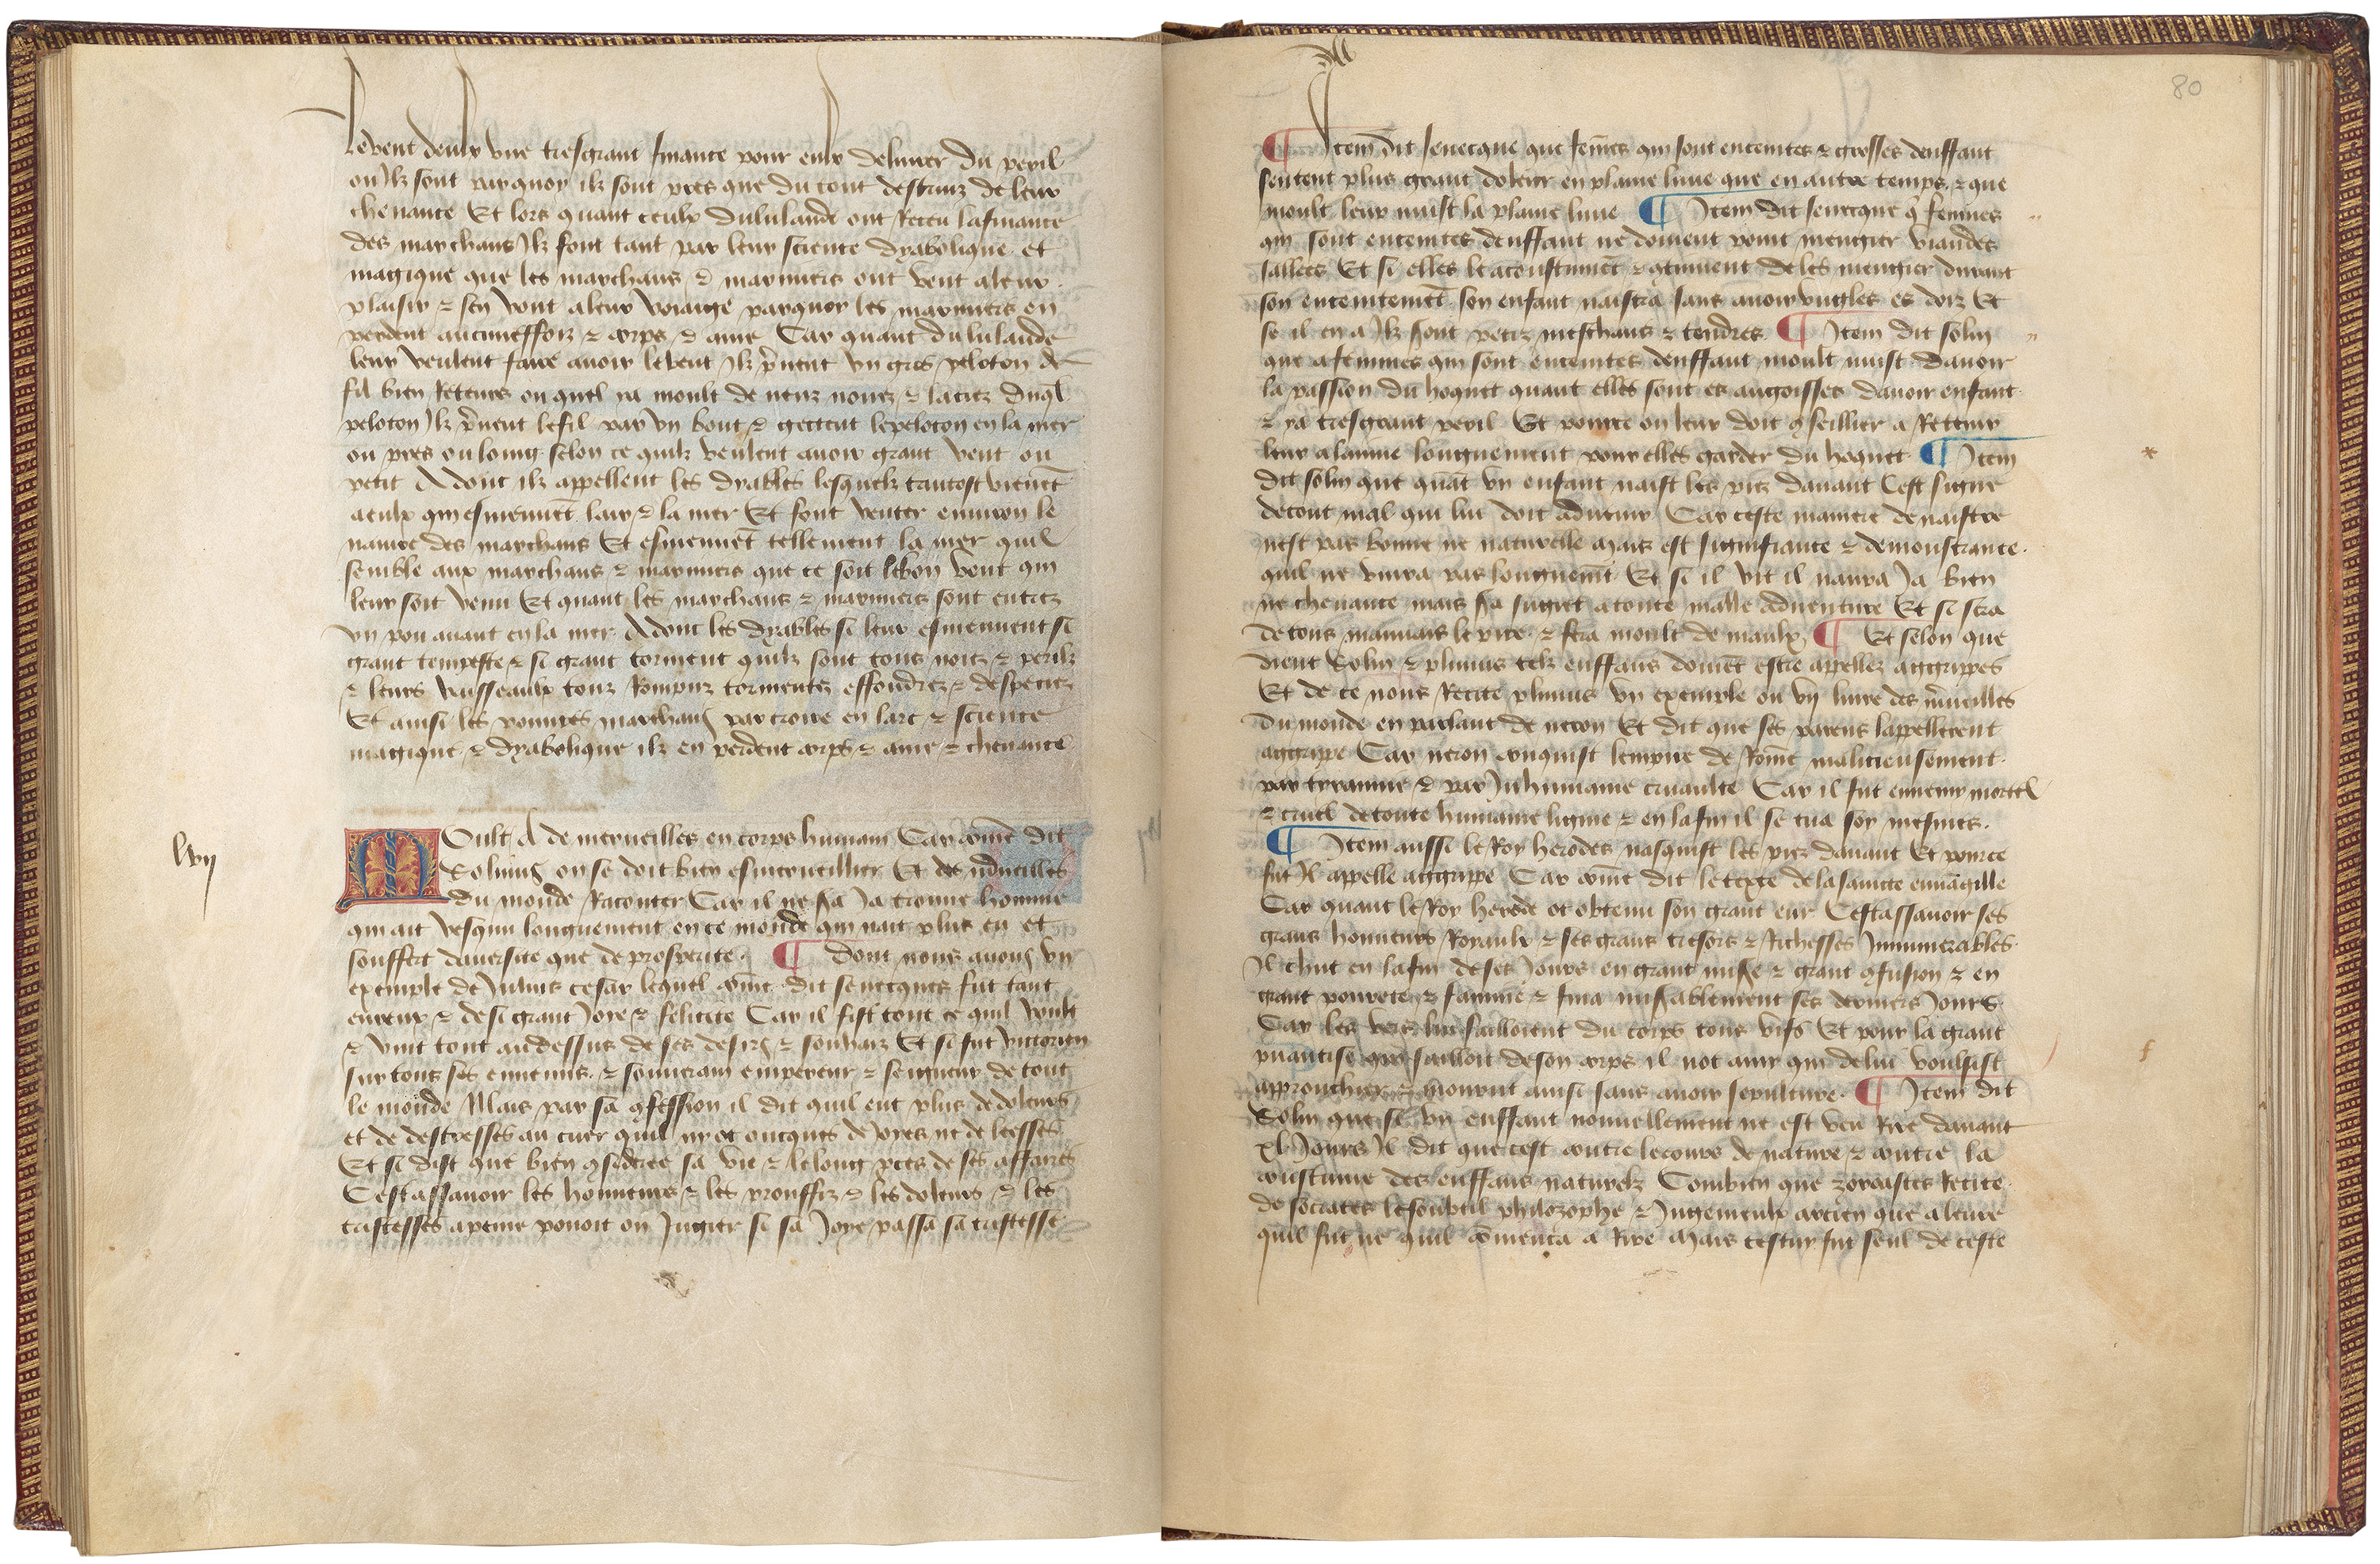 levent deulx une tresgrant finance pour eulx delivrer du peril
ou Ilz sont parquoy ilz sont pres que du tout destruiz de leur
chevance Et lors quant ceulx dululande ont Receu lafinance
des marchans Ilz font tant par leur science dyabolique et
magique que les marchans & mariniers ont vent aleur
plaisir & sen vont aleur voiaige parquoy les mariniers en
perdent aucuneffoiz & corps & ame Car quant dululande
leur veulent faire avoir levent Ilz p̄nent un gros peloton de
fil bien Retenrs ou quel ya moult de neuz nouez & laciez duql̄
peloton Ilz p̄nent lefil par un bout & gectent lepeloton en la mer
ou pres ou loing selon ce quilz veulent avoir grant vent ou
petit Adonc ilz appellent les dyables lesquelz tantost vienēt
aeulx qui esmeuvēt lair & la mer Et font venter environ le
navire des marchans Et esmeuvēt tellement la mer quil
semble aux marchans & mariniers que ce soit lebon vent qui
leur soit venu Et quant les marchans & mariniers sont entrez
un pou avant en la mer Adont les dyables si leur esmeuvent si
grant tempeste & si grant torment quilz sont tous noiez & perilz
& leurs vaisseaulx touz Rompuz tormentez effondrez & despeciez
Et ainsi les povures marchans par croire en lart & science
magique & dyabolique ilz en perdent corps & ame & chevance
lvij
Moult A de merveilles en corps humain Car com̄e dit
Solinus on se doit bien esmerveillier Et des m̄veilles
du monde Raconter Car il ne fu Ja trouve homme
qui ait vesqui longuement en ce monde qui nait plus eu et
souffert daversite que de prosperite ¶ Dont nous avons un
exemple de Julius cesar lequel com̄e dit senecques fut tant
eureux & de si grant Joye & felicite Car il fist tout ce quil voult
& vint tout audessus de ses desirs & souhaiz Et si fut victorien
sur tous ses ennemis & souverain empereur & seigneur de tout
le monde Mais par sa ꝯfession il dit quil eut plus de doleurs
et de destresses au cuer quil ny ot oncques de Joyes ne de leesses
Et si dist que bien ꝯsideree sa vie & lelong pces de ses affaires
Cestassavoir les honneurs & les prouffiz & les doleurs & les
tristesses apeine povoit on Jugier si sa Joye passa sa tristesse
80
¶ Item dit senecque que fem̄es qui sont enceintes & grosses denffant
sentent plus grant doleur en plaine lune que en autre temps & que
moult leur nuist la plaine lune ¶ Item dit senecque q̄ femmes
qui sont enceintes denffant ne doivent point mengier viandes
sallees Et si elles le acoustumēt & ꝯtinuent de les mengier durant
son enceintemēt son enfant naistra sans avoir ungles es doiz Et
se il en a Ilz sont petiz meschans & tendres ¶ Item dit solin
que afemmes qui sont enceintes denffant moult nuist davoir
la passion du hoquet quant elles sont es angoisses davoir enfant
& ya tresgrant peril Et pource on leur doit ꝯseillier a Retenir
leur alaine longuement pour elles garder du hoquet ¶ Item
dit solin que quāt un enfant naist les piez davant Cest signe
detout mal qui lui doit advenir Car ceste maniere de naistre
nest pas bonne ne naturelle mais est signifiance & demonstrance
quil ne vivra pas longuemēt Et si il vit il naura Ja bien
ne chevance mais sa suget atoute malle adventure Et si sera
de tous mauvais lepire & fera moult de maulx ¶ Et selon que
dient Solin & plinius telz enffans doivēt estre appellez aggrippes
Et de ce nous Recite plinius un exemple ou vij livre des m̄veilles
du monde en parlant de neron Et dit que ses parens lappellerent
aggrippe Car neron conquist lempire de Rom̄e malicieusement
par tyrannie & par Inhumaine cruaulte Car il fut ennemy mortel
& cruel detoute humaine ligne & en lafin il se tua soy mesmes
¶ Item aussi le Roy herodes nasquist les piez davant Et pource
fut Il appelle aggrippe Car com̄e dit letexte de la saincte euvāgille
Car quant le Roy herode ot obtenu son grant eur Cestassavoir ses
grans honneurs Royaulx & ses grans tresors & Richesses Innumerables
Il chut en lafin de ses Jours en grant mis̄e & grant ꝯfusion & en
grant povrete & famine & fina mis̄ablement ses derniers Jours
Car les vers lui sailloient du corps tous vifs Et pour la grant
puantise qui sailloit de son corps il not amy qui de lui voulsist
approuchier & mourut ainsi sans avoir sepulture ¶ Item dit
Solin que si un enffant nouvellement ne est veu Rire davant
xl Jours Il dit que cest contre lecours de nature & contre la
coustume des enffans naturelz Combien que zoroastes Recite
de socrates lesoubtil philozophe & Ingenieulx arcien que aleure
quil fut ne quil com̄enca a Rire Mais cestuy fut seul de ceste